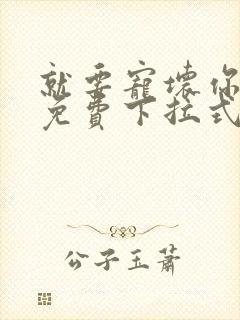 就要寵壞你
免費下拉式
公子玉蕭